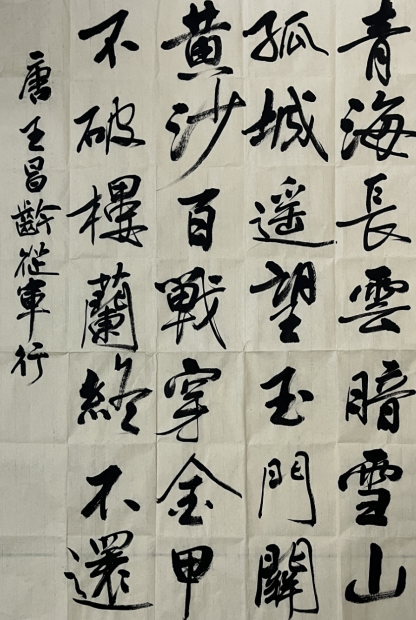 青海長雲暗雪山
孤城遥望玉門關
黄沙百戰穿金甲
不破樓蘭終不還
唐王昌齡從軍行